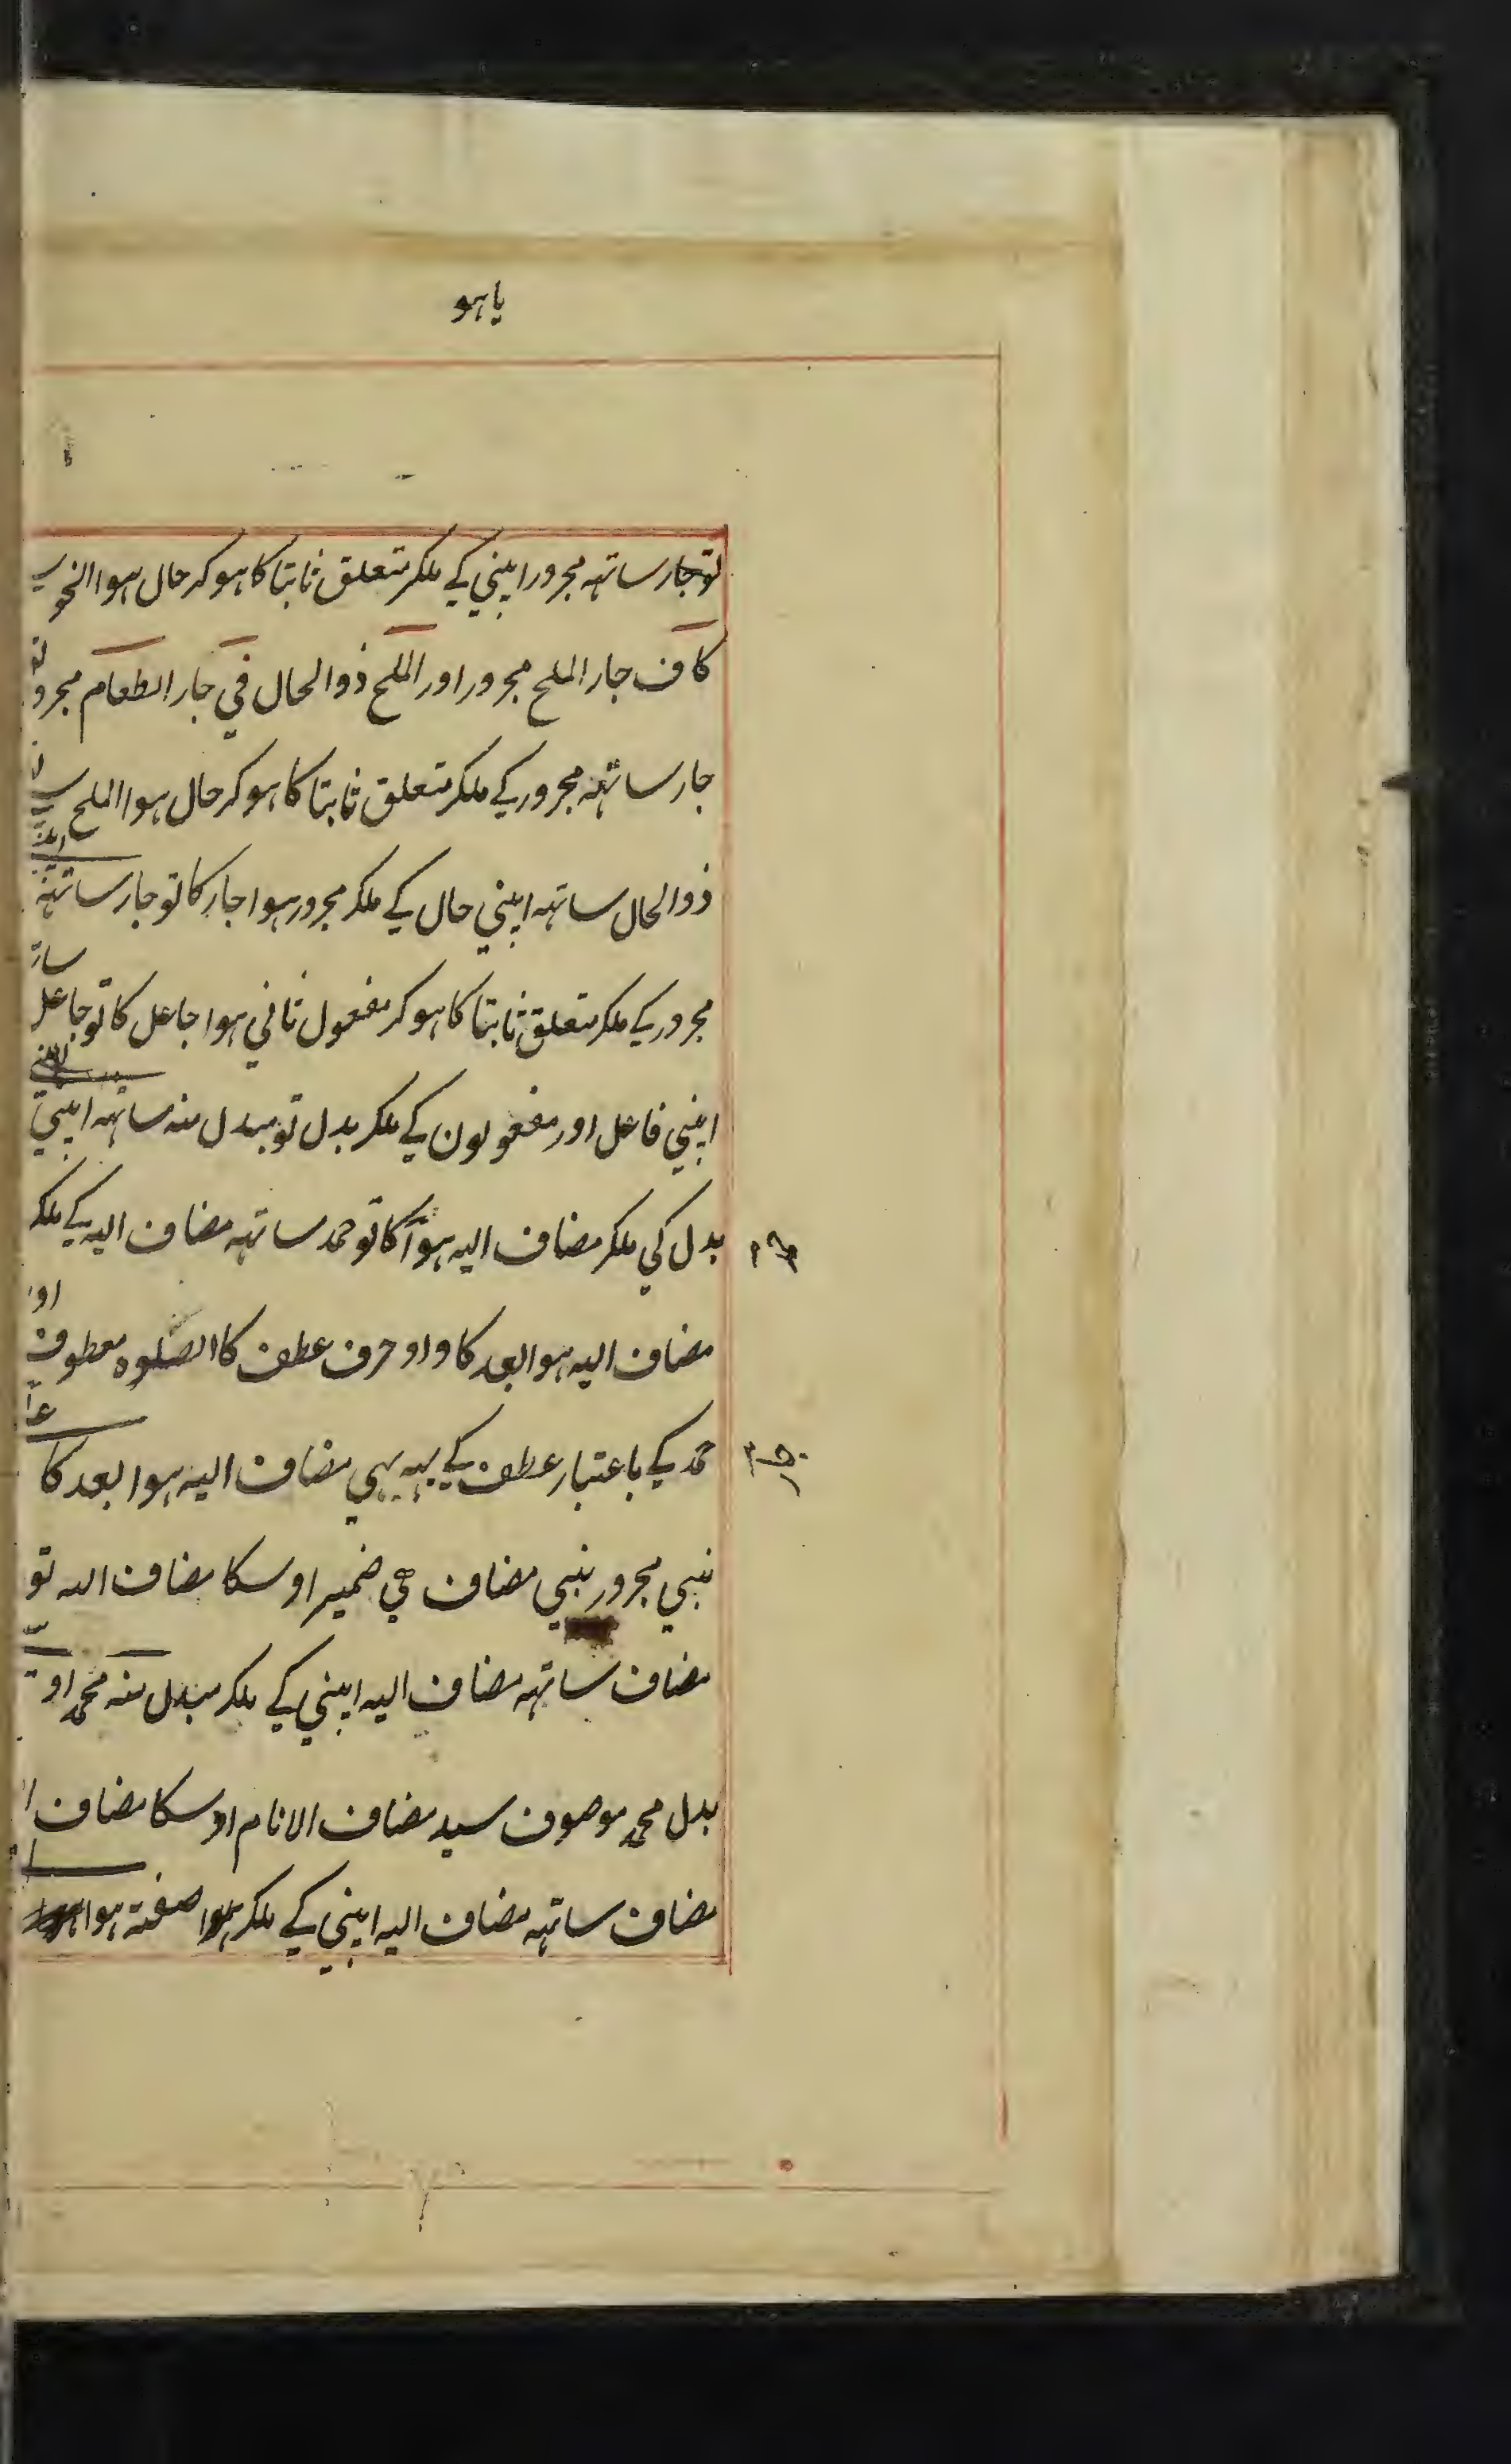 یاہو
توجار ساتہہ مجرور اپنی کے ملکر متعلق ثابتا کا ہوکر حال ہوا النحو سے
کاف جار الملح مجرور اور الملح ذوالحال في جار الطعام مجرور تو
جار ساتہہ مجرور کے ملکر متعلق ثابتا کا ہوکر حال ہوا الملح سے
ذوالحال ساتہہ اپنی حال کے ملکر مجرور ہوا جار کا تو جار ساتہہ
مجرور کے ملکر متعلق ثابتا کا ہوکر مفعول ثانی ہوا جاعل کا تو جاعل
اپنی فاعل اور مفعولون کے ملکر بدل تو مبدل منہ ساتہہ اپنی
بدل کی ملکر مضاف الیہ ہوا کا تو حمد ساتہہ مضاف الیہ کے ملکر
مضاف الیہ ہوا بعد کا واو حرف عطف کا الصلوہ معطوف اوپر
حمد کے باعتبار عطف کے یہہ بہی مضاف الیہ ہوا بعد کا
نبي مجرور نبي مضاف ہي ضمیر اوسکا مضاف الیہ تو
مضاف ساتہہ مضاف الیہ اپنی کے ملکر مبدل منہ محمد او
بدل محمد موصوف سید مضاف الانام اوسکا مضاف
مضاف ساتہہ مضاف الیہ اپنی کے ملکر صفتہ ہوا